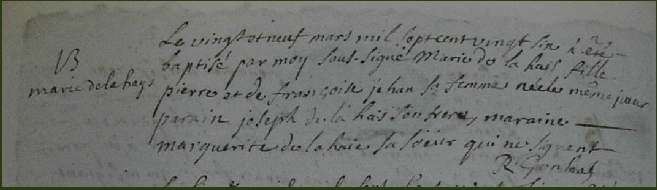 B
marie dela hays
Le vingt et neuf mars mil sept cent vingt six à été
baptisé par moy sous-signé Marie de la hais fille
pierre et de françoise jehan sa femme née le même jour
parain joseph de la hais son frere, maraine
marguerite de la haie sa soeur qui ne signent
R